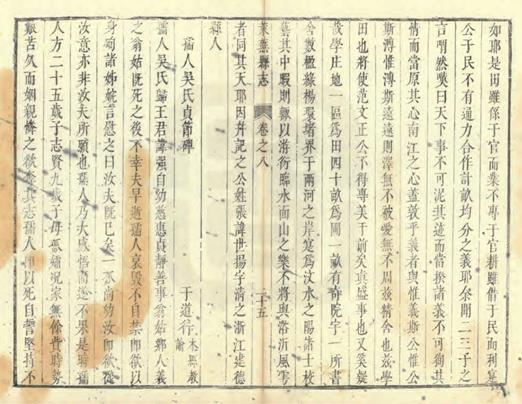 如耶是田雖係于官而業不專于官耕雖借于民而利寔
公于民不有通力合作計畝均分之義耶余聞二三子之
言喟然嘆曰天下事不可泥其遠而當揆諸義不可徇其
情而當原其心南江之心蓋敦乎義者與惟義斯公惟公
斯溥惟溥斯遠遠則澤無不被愛無不周茲精舍也茲
田也將使范文正公不得專美于前矣真盛事也又奚疑
義學庄地一區為田四十畝為圃一畝有奇院宇一所書
舍數楹緣楊環堵界于兩河之岸寔為汶水之陽諸士枚
藝其中暇則歌以游衍臨水面山之樂不將與帝沂風雩
者同其天耶因并記之公姓張諱世揚字清之浙江建德
縣人
萊蕪縣志
卷之八
二十五
孺人吳氏貞節碑
于道行
本縣教諭
孺人吳氏歸王君諱強自幼慈惠貞靜善事翁姑鄉人義
之翁姑既死之後不幸夫早逝孺人哀毀不自禁即欲以
身殉諸姊姒言慰之曰汝夫既已矣張汝幼汝而欲從
汝意亦非汝夫所願也孺人乃大慼悟圖逝不果是時孺
人方二十五歲子志賢九歲子母孤孀況家無餘貲時勢
艱苦久而姻親憐之欲奪其志孺人即以死自誓堅持不